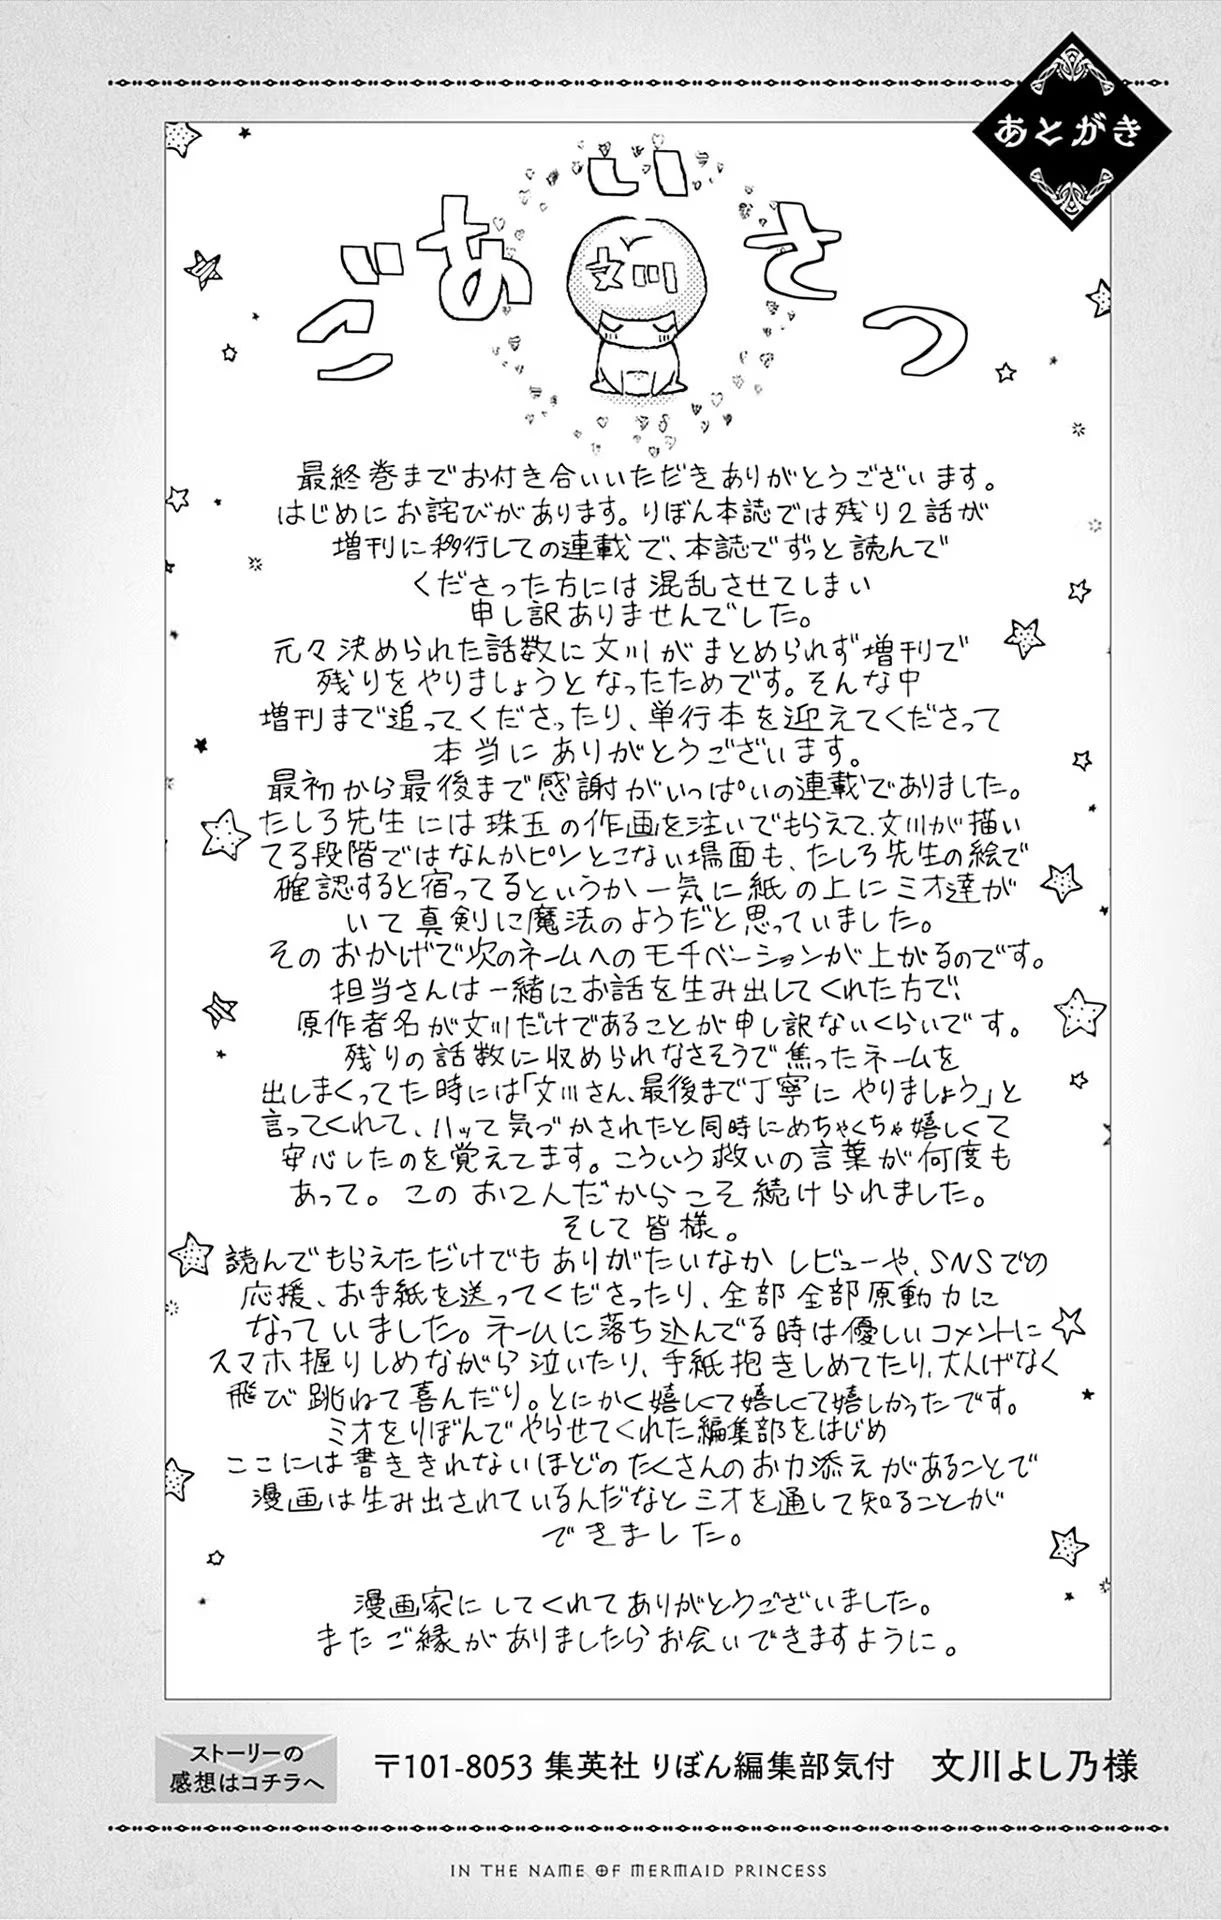 あとがき
ごあいさつ
文川
最終巻までお付き合いいただきありがとうございます。
はじめにお詫びがあります。りぼん本誌では残り2話が
増刊に移行しての連載で、本誌でずっと読んで
くださった方には混乱させてしまい
申し訳ありませんでした。
元々決められた話数に文川がまとめられず増刊で
残りをやりましょうとなったためです。そんな中
増刊まで追ってくださったり、単行本を迎えてくださって
本当にありがとうございます。
最初から最後まで感謝がいっぱいの連載でありました。
たしろ先生には珠玉の作画を注いでもらえて、文川が描い
てる段階ではなんかピンとこない場面も、たしろ先生の絵で
確認すると宿ってるというか一気に紙の上にミオ達が
いて真剣に魔法のようだと思っていました。
そのおかげで次のネームへのモチベーションが上がるのです。
担当さんは一緒にお話を生み出してくれた方で、
原作者名が文川だけであることが申し訳ないくらいです。
残りの話数に収められなさそうで焦ったネームを
出しまくってた時には「文川さん、最後まで丁寧にやりましょう」と
言ってくれて、ハッて気づかされたと同時にめちゃくちゃ嬉しくて
安心したのを覚えてます。こういう救いの言葉が何度も
あって。このおてんだからこそ続けられました。
そして皆様。
読んでもらえただけでもありがたいなか レビューや、SNSでの
応援、お手紙を送ってくださったり、全部全部原動力に
なっていました。ネームに落ち込んでる時は優しいコメントに
スマホ握りしめながら泣いたり、手紙抱きしめてたり、大人げなく
飛び跳ねて喜んだり。とにかく嬉しくて嬉しくて嬉しかったです。
ミオをりぼんでやらせてくれた編集部をはじめ
ここには書ききれないほどのたくさんのお力添えがあることで
漫画は生み出されているんだなとミオを通して知ることが
できました。
漫画家にしてくれてありがとうございました。
またご縁がありましたらお会いできますように。
ストーリーの
感想はコチラへ
〒101-8053 集英社 りぼん編集部気付 文川よし乃様
IN THE NAME OF MERMAID PRINCESS